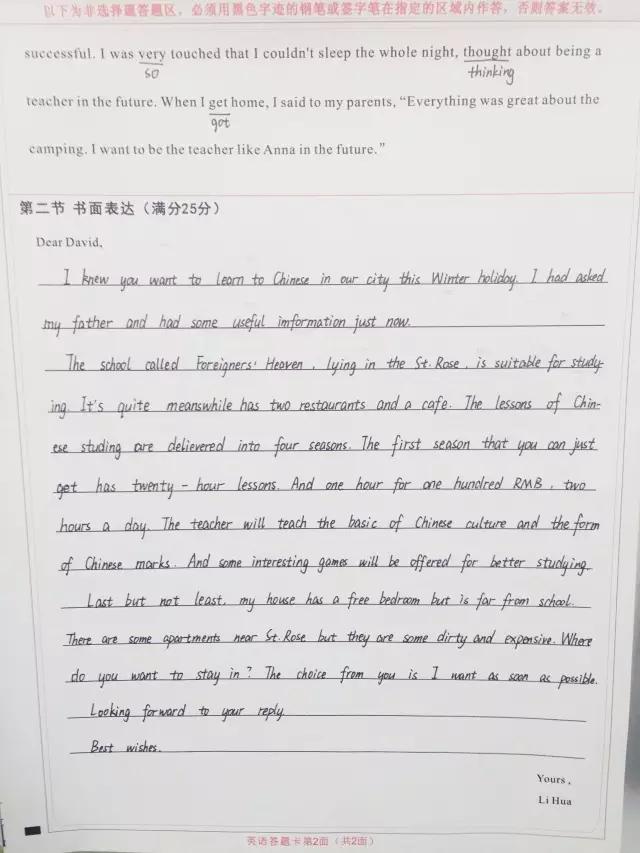 以下为非选择题答题区，必须用黑色字迹的钢笔或签字笔在指定的区域内作答，否则答案无效。
successful. I was very touched that I couldn't sleep the whole night, thought about being a
so thinking
teacher in the future. When I get home, I said to my parents, “Everything was great about the
got
camping. I want to be the teacher like Anna in the future.”
第二节 书面表达（满分25分）
Dear David,
I knew you want to learn to Chinese in our city this Winter holiday. I had asked
my father and had some useful imformation just now.
The school called Foreigners' Heaven, lying in the St. Rose, is suitable for study-
ing. It's quite meanswhile has two restaurants and a cafe. The lessons of Chin-
ese studing are delievered into four seasons. The first season that you can just
get has twenty-hour lessons. And one hour for one hundred RMB, two
hours a day. The teacher will teach the basic of Chinese culture and the form
of Chinese marks. And some interesting games will be offered for better studying.
Last but not least, my house has a free bedroom but is far from school.
There are some apartments near St. Rose but they are some dirty and expensive. Where
do you want to stay in? The choice from you is I want as soon as possible.
Looking forward to your reply.
Best wishes.
Yours,
Li Hua
英语答题卡第2面（共2面）